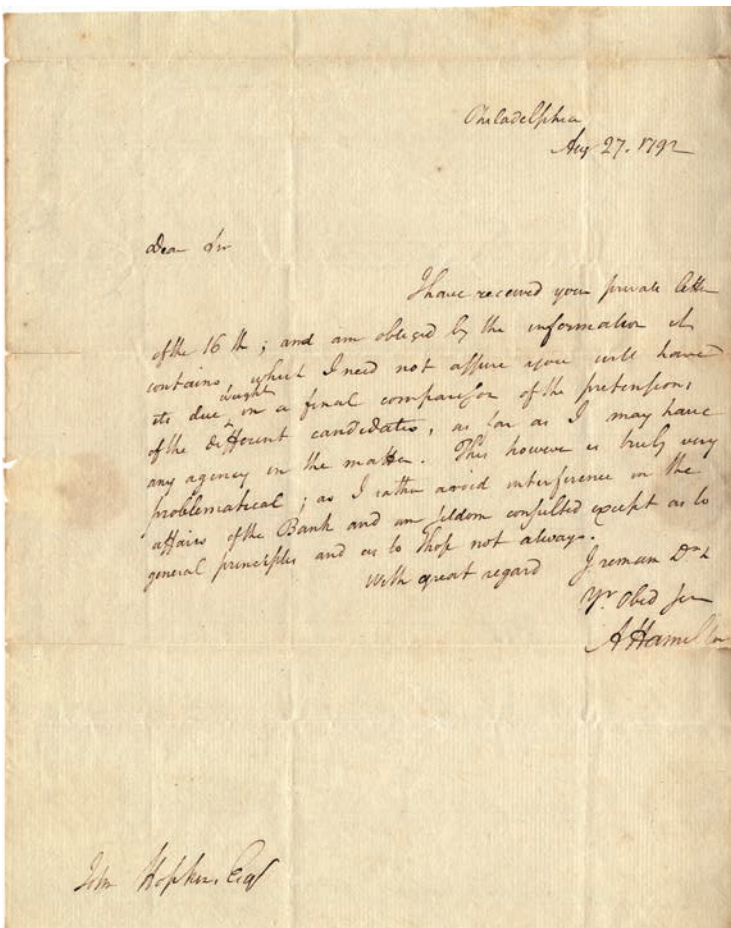 Philadelphia
Aug 27. 1792
Dear Sir
I have received your private letter
of the 16th; and am obliged by the information it
contains, which I need not assure you will have
its due weight on a final comparison of the pretensions
of the different candidates, as far as I may have
any agency in the matter. This however is truly very
problematical; as I rather avoid interference in the
affairs of the Bank and am seldom consulted except as to
general principles and as to those not always.
With great regard I remain Dr Sir
Yr. Obed ser
A Hamilton
John Hopkins, Esqr